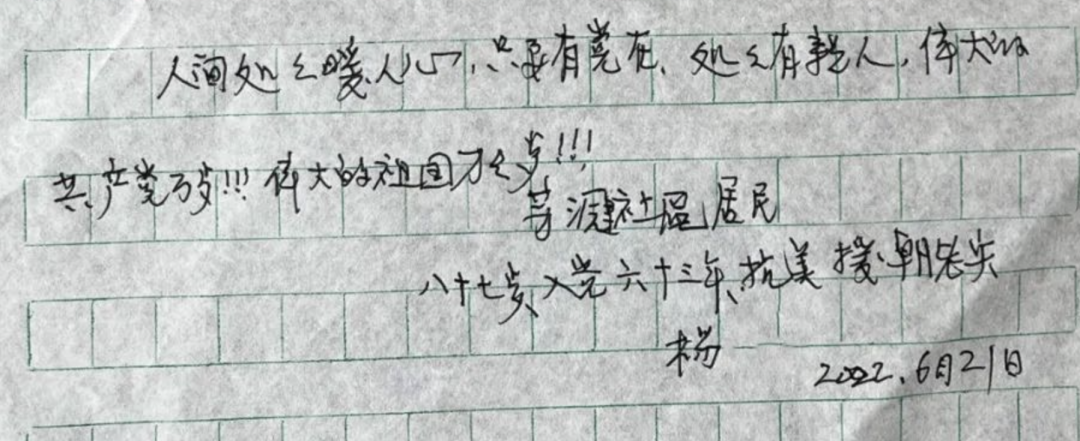 人间处处暖人心,只要有党在、处处有亲人,伟大的
共产党万岁!!!伟大的祖国万岁!!!
社区居民
八十七岁、入党六十三年、抗美援朝老兵
杨
2022.6月21日